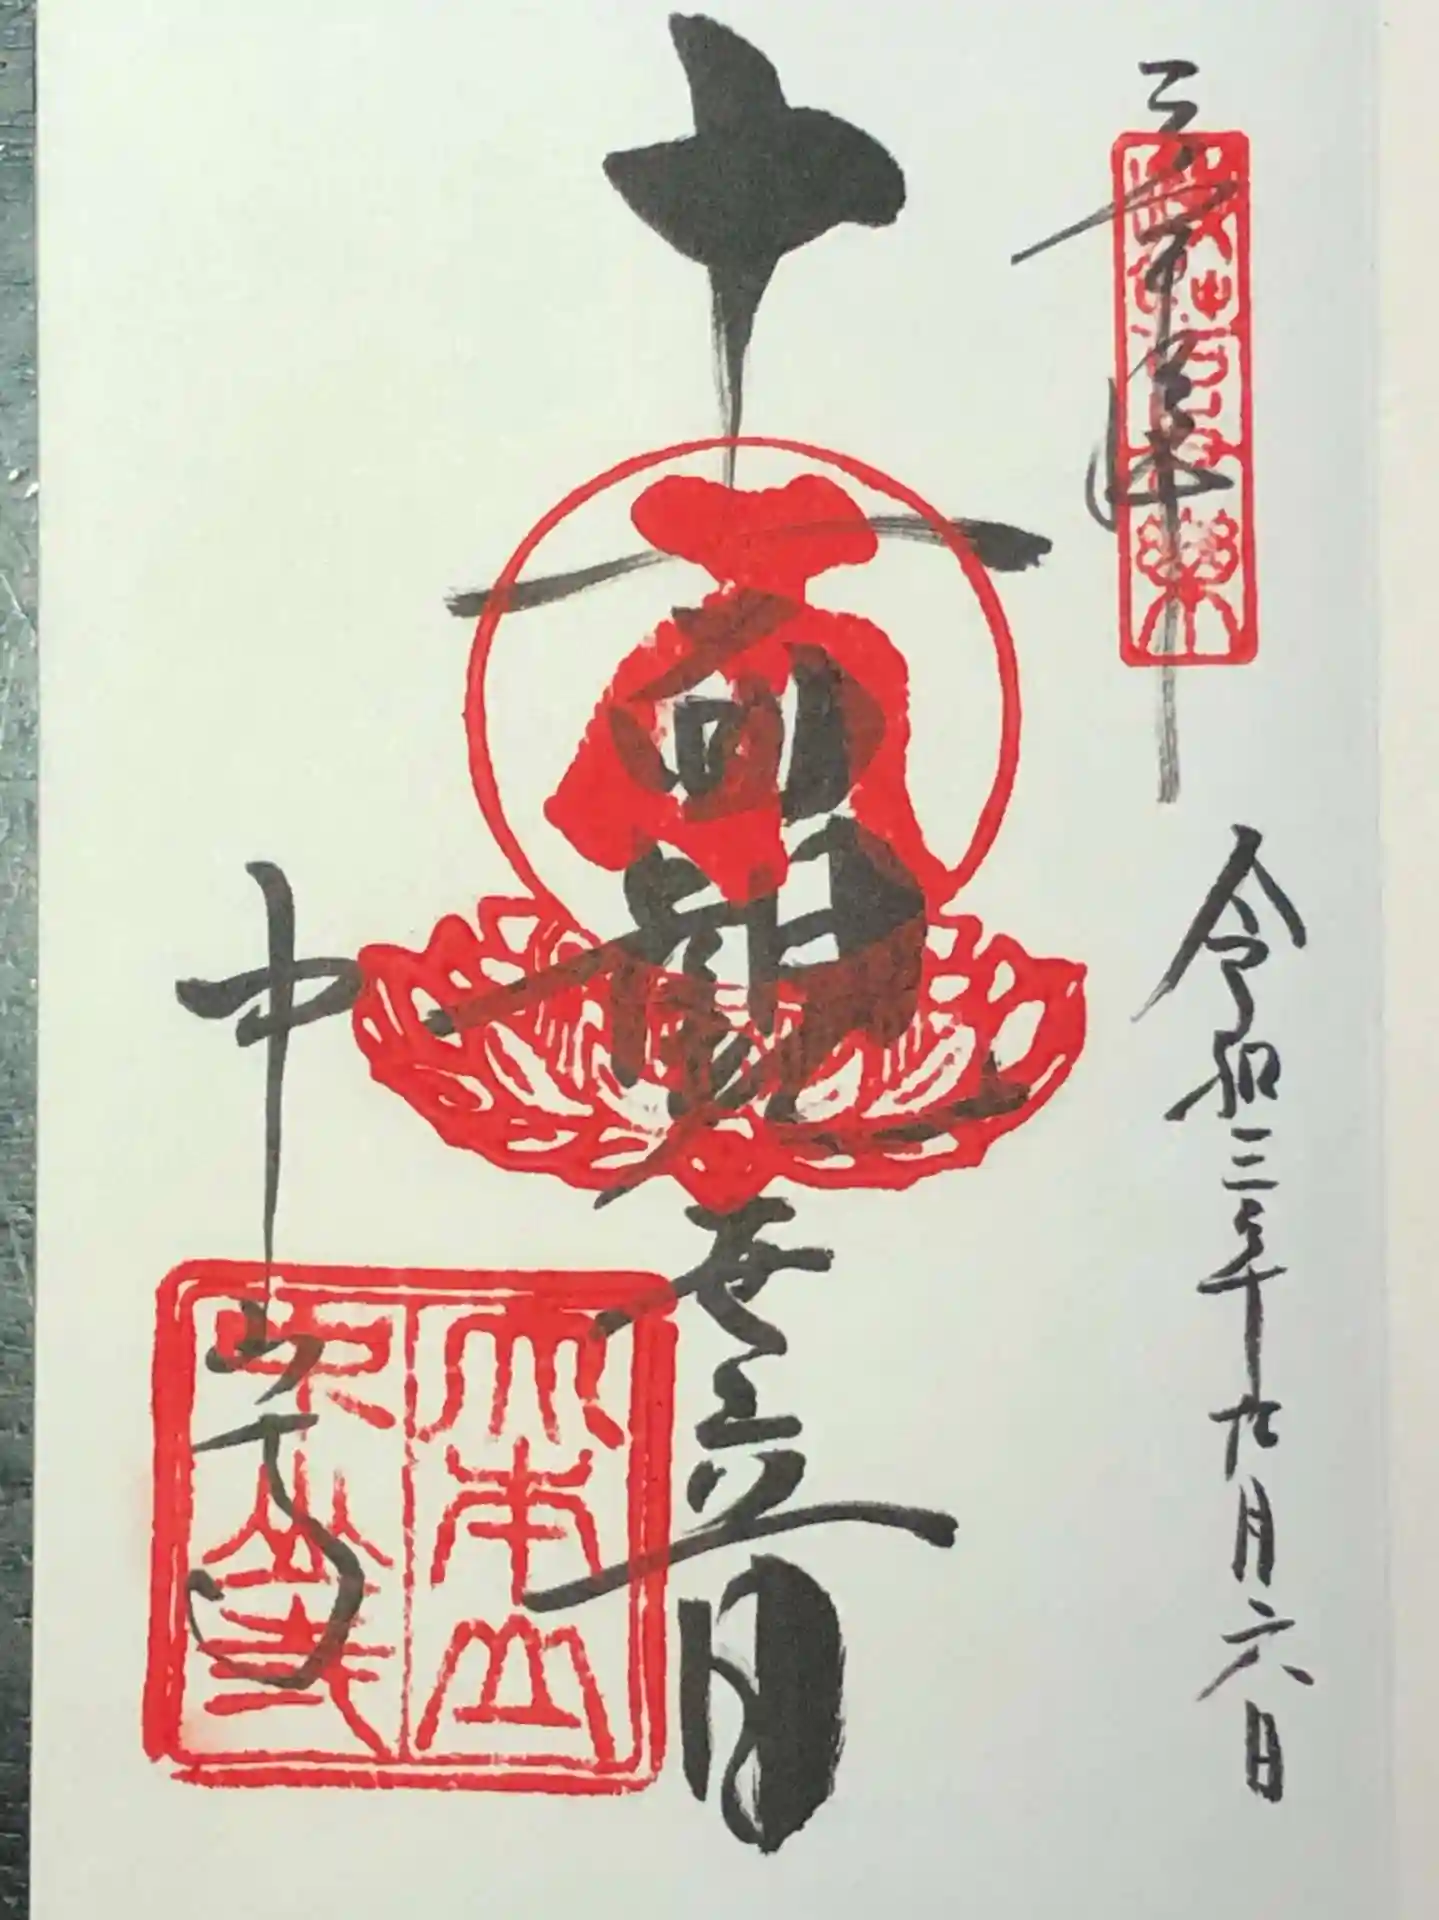 奉拝
令和三年九月六日
十一面観世音
中山寺
大本山